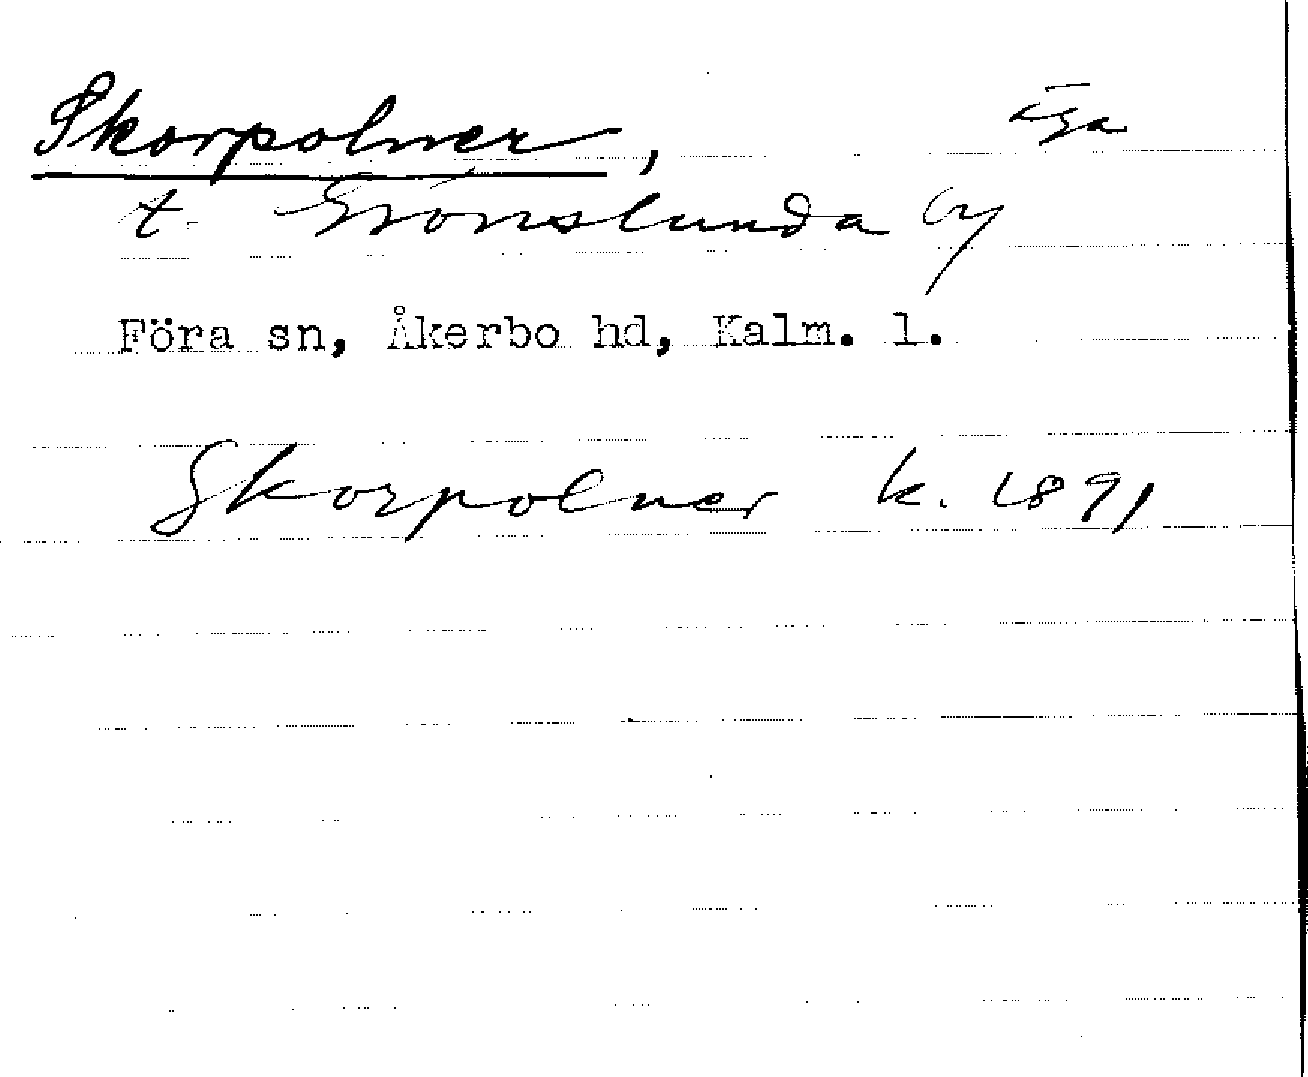 Skorpolner, äga
t. Grönslunda by
Föra sn, Åkerbo hd, Kalm. l.
Skorpolner k. 1891